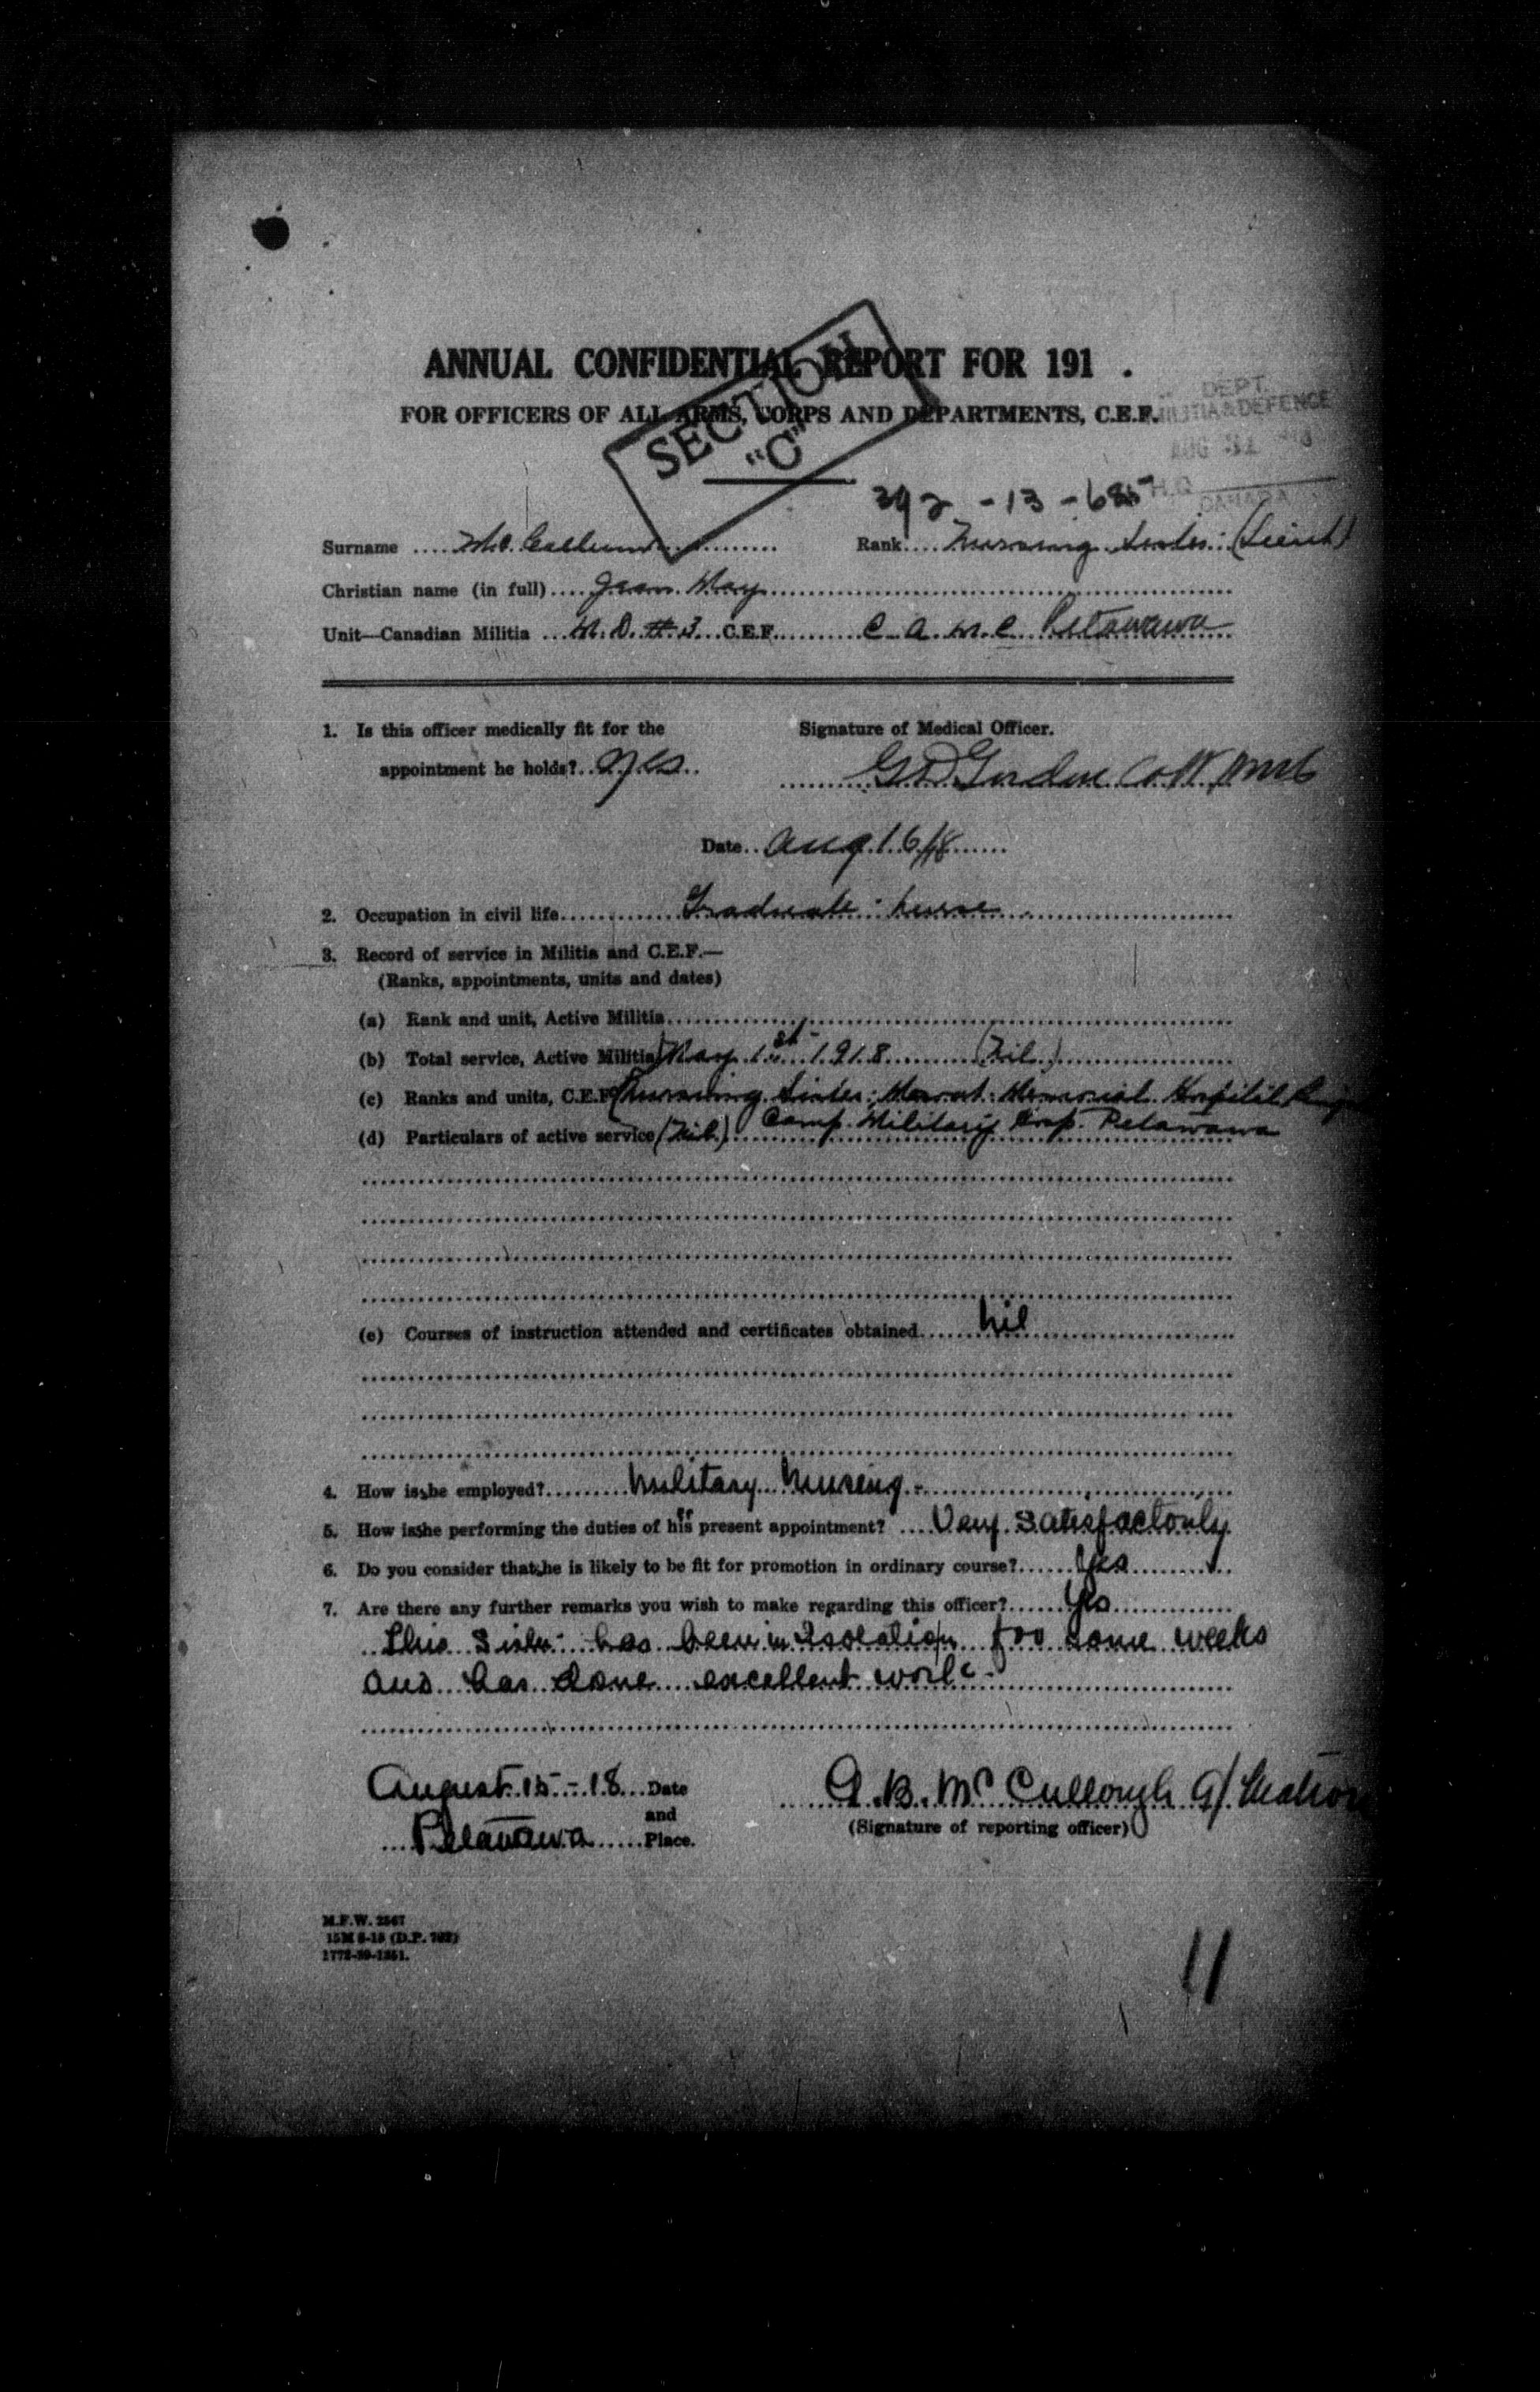 ANNUAL CONFIDENTIAL REPORT FOR 191 .
FOR OFFICERS OF ALL ARMS, CORPS AND DEPARTMENTS, C.E.F.
SECTION
"C"
DEPT.
MILITIA & DEFENCE
AUG
H.Q.
CANADA
392 - 13 - 685
Surname .... McCallum .......... Rank .... Nursing Sister (Lieut)
Christian name (in full) .... Jean May ..........
Unit—Canadian Militia ... M. D. # 3 ... C.E.F. .......... C A M C Petawawa
1. Is this officer medically fit for the Signature of Medical Officer.
appointment he holds? .. Yes .. .......... G D Gordon
Date .. Aug 16/18 ......
2. Occupation in civil life ............ Graduate Nurse ............
3. Record of service in Militia and C.E.F.—
(Ranks, appointments, units and dates)
(a) Rank and unit, Active Militia ............
(b) Total service, Active Militia May 1st 1918 .......... (Nil) ..........
(c) Ranks and units, C.E.F. (Nursing Sister: Mowat Memorial Hospital
(d) Particulars of active service (Nil) .. Camp Military Hosp. Petawawa
(e) Courses of instruction attended and certificates obtained ...... Nil ..........
4. How is she employed? ........ Military Nursing - ..........
5. How is she performing the duties of her present appointment? .... Very Satisfactorily
6. Do you consider that she is likely to be fit for promotion in ordinary course? ...... Yes ........
7. Are there any further remarks you wish to make regarding this officer? ...... Yes ..........
This Sister has been in Isolation for some weeks
and has done excellent work -
August 15 - 18 ... Date .......... A. B. McCullough A/ Matron
and
.... Petawawa ...... Place. (Signature of reporting officer)
M.F.W. 2567
15M 8-18 (D.P. 702)
1772-39-1351.
11